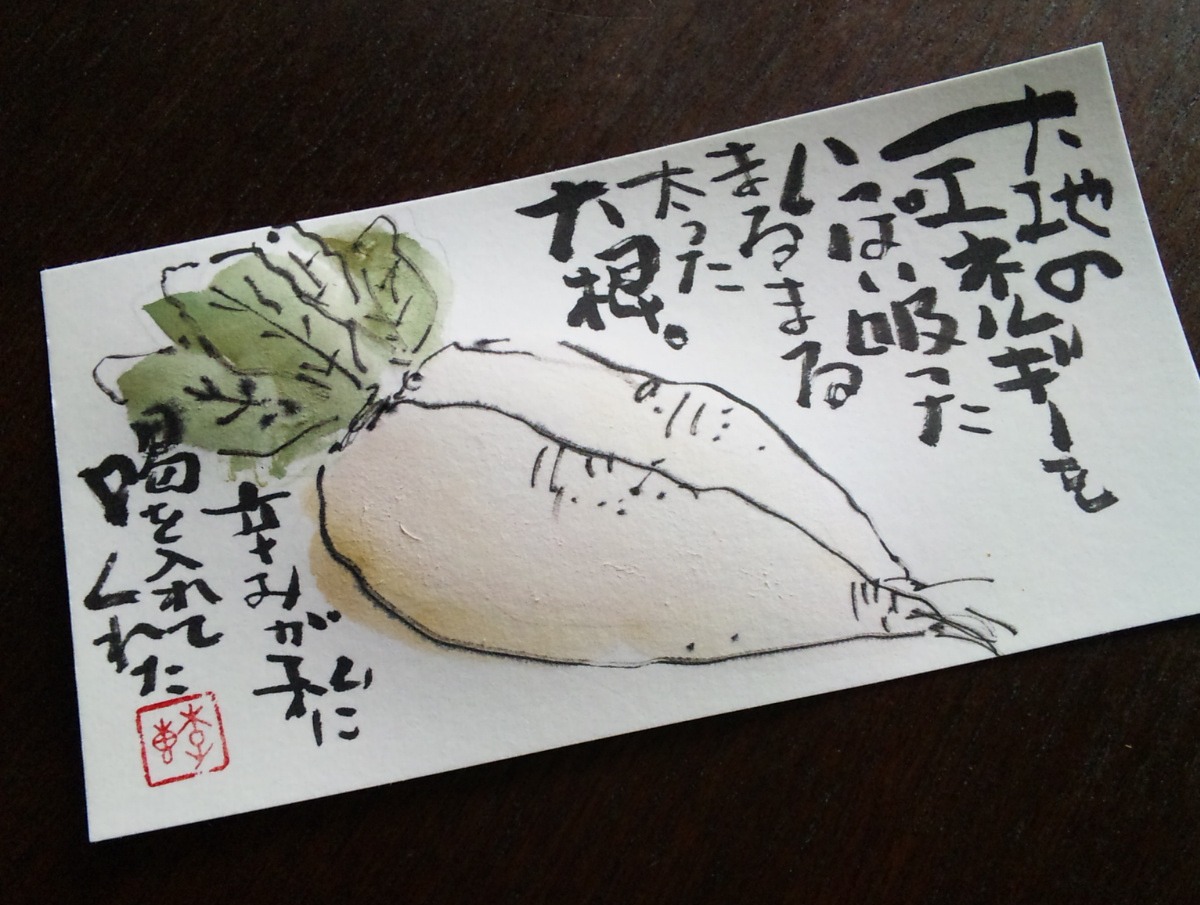 大地の
エネルギーを
いっぱい吸った
まるまる
太った
大根。
辛みが私に
喝を入れて
くれた